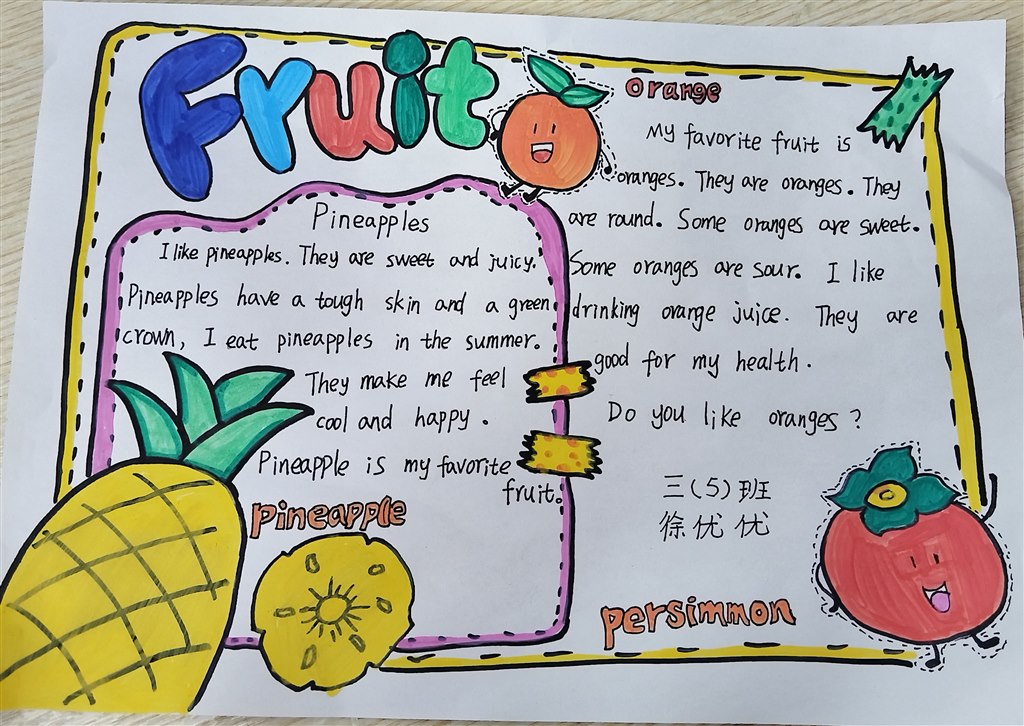 Fruit
Pineapples
I like pineapples. They are sweet and juicy.
Pineapples have a tough skin and a green
crown, I eat pineapples in the summer.
They make me feel
cool and happy.
Pineapple is my favorite
fruit.
pineapple
orange
My favorite fruit is
oranges. They are oranges. They
are round. Some oranges are sweet.
Some oranges are sour. I like
drinking orange juice. They are
good for my health.
Do you like oranges?
三(5)班
徐优优
persimmon